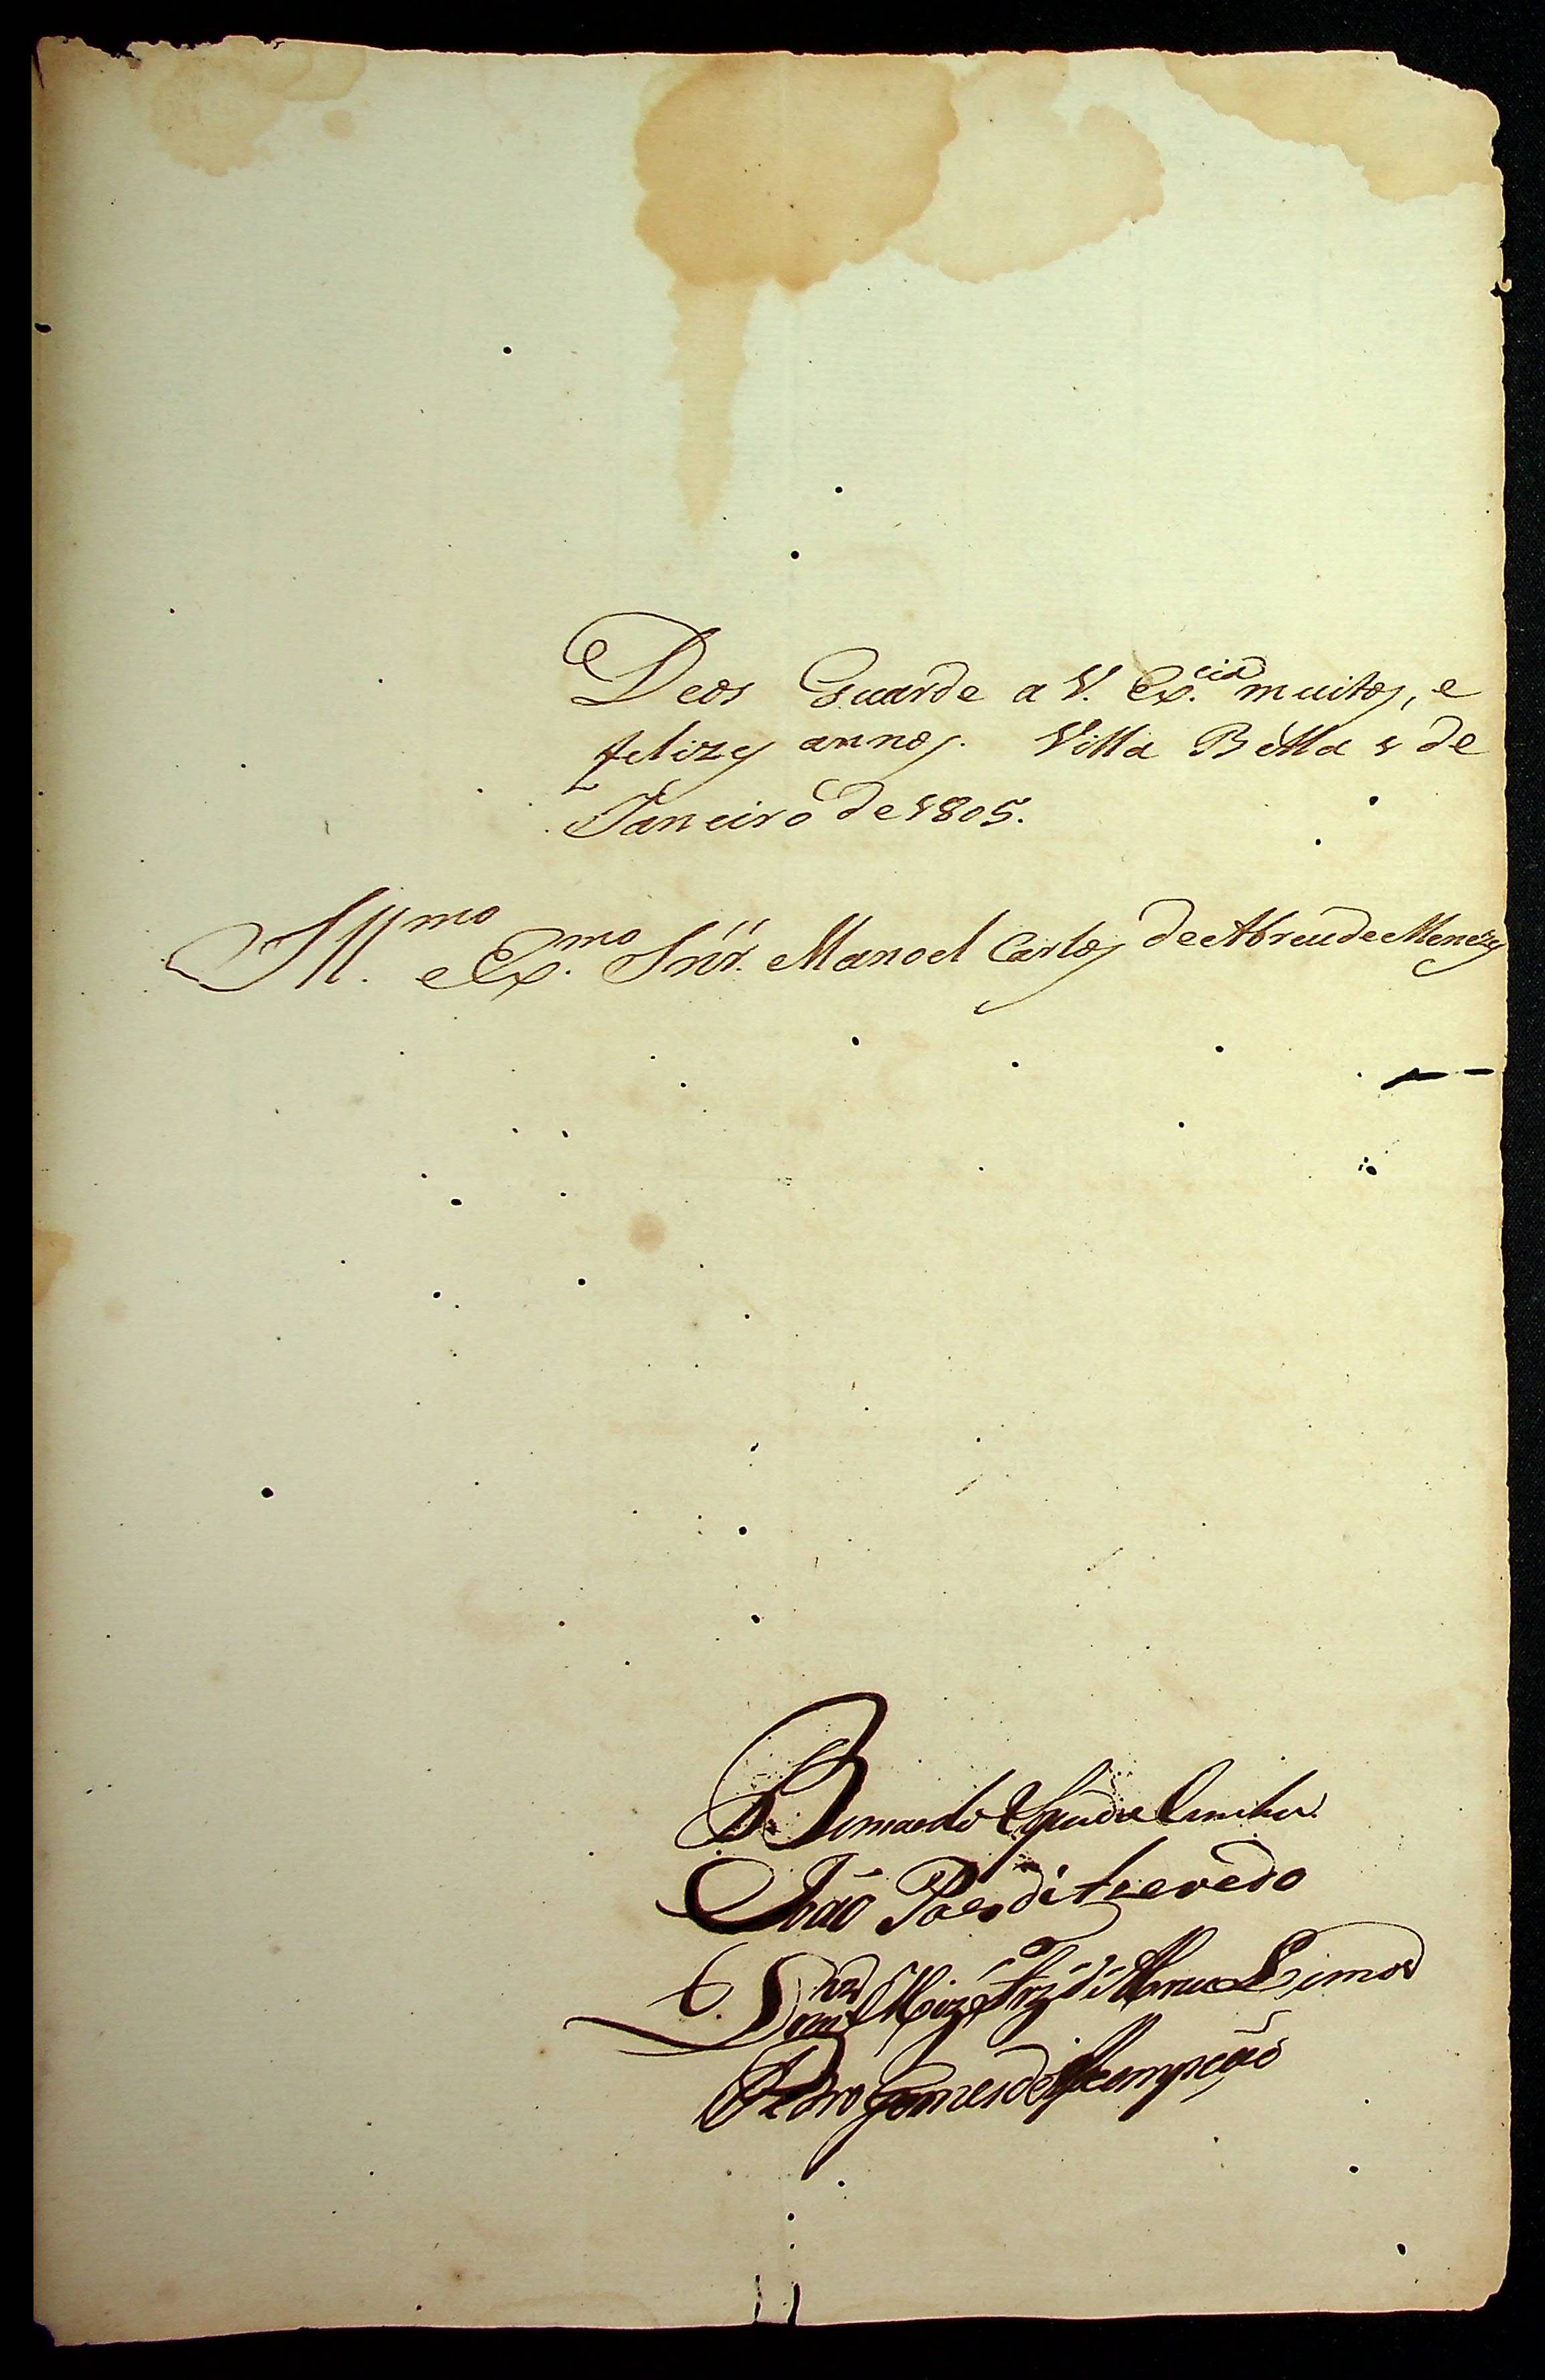 Deos Guarde a V. Ex.cia muitos, e
felizes annos. Villa Bella 1 de
Janeiro de 1805.
Ill.mo e Ex.mo Snr. Manoel Carlos de Abreu de Menezes
Bernardo
João Paes de Azevedo
de Abreu Lemos
Pedro Gomes de